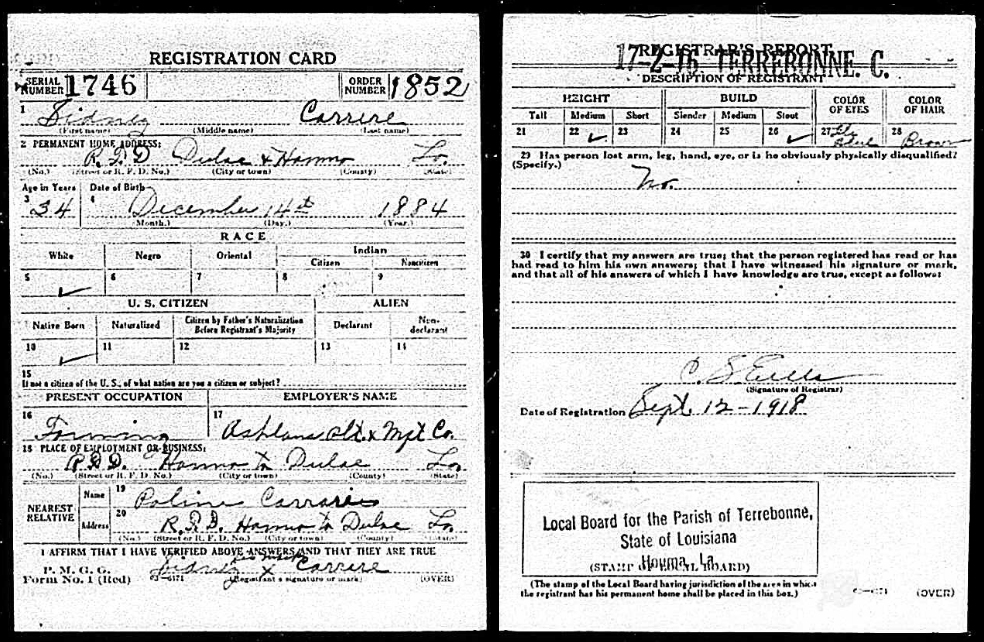 REGISTRATION CARD
SERIAL NUMBER 1746
ORDER NUMBER 1852
1 Sidney Carrere
(First name) (Middle name) (Last name)
2 PERMANENT HOME ADDRESS:
R.F.D Dulac & Houma La.
(No.) (Street or R. F. D. No.) (City or town) (County) (State)
Age in Years Date of Birth
3 34 4 December 14th 1884
(Month.) (Day.) (Year.)
RACE
White Negro Oriental Indian
Citizen Noncitizen
5 ✓ 6 7 8 9
U. S. CITIZEN ALIEN
Native Born Naturalized Citizen by Father's Naturalization Before Registrant's Majority Declarant Non-declarant
10 ✓ 11 12 13 14
15
If not a citizen of the U. S., of what nation are you a citizen or subject?
PRESENT OCCUPATION EMPLOYER'S NAME
16 Farming 17 Ashland Plt. & Co.
18 PLACE OF EMPLOYMENT OR BUSINESS:
R.F.D. Houma to Dulac La.
(No.) (Street or R. F. D. No.) (City or town) (County) (State)
NEAREST RELATIVE
Name 19 Poline
Address 20 R.F.D. Houma to Dulac La.
(No.) (Street or R. F. D. No.) (City or town) (County) (State)
I AFFIRM THAT I HAVE VERIFIED ABOVE ANSWERS AND THAT THEY ARE TRUE
P. M. G. O.
Form No. 1 (Red)
Sidney his mark x Carrere
(Registrant's signature or mark) (OVER)
REGISTRAR'S REPORT
17-2-16 TERREBONNE. C.
DESCRIPTION OF REGISTRANT
HEIGHT BUILD COLOR OF EYES COLOR OF HAIR
Tall Medium Short Slender Medium Stout
21 22 ✓ 23 24 25 26 ✓ 27 28 Brown
29 Has person lost arm, leg, hand, eye, or is he obviously physically disqualified?
(Specify.)
No.
30 I certify that my answers are true; that the person registered has read or has
had read to him his own answers; that I have witnessed his signature or mark,
and that all of his answers of which I have knowledge are true, except as follows:
(Signature of Registrar)
Date of Registration Sept. 12-1918
Local Board for the Parish of Terrebonne,
State of Louisiana
Houma, La.
(STAMP OF LOCAL BOARD)
(The stamp of the Local Board having jurisdiction of the area in which
the registrant has his permanent home shall be placed in this box.)
(OVER)